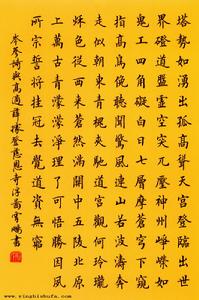 塔勢如湧出孤高聳天宮登臨出世
界磴道盤虛空突兀壓神州崢嶸如
鬼工四角礙白日七層摩蒼穹下窺
指高鳥俯聽聞驚風連山若波濤奔
走似朝東青槐夾馳道宮觀何玲瓏
秋色從西來蒼然滿關中五陵北原
上萬古青濛濛淨理了可悟勝因夙
所宗誓將挂冠去覺道資無窮
岑參詩與高適薛據登慈恩寺浮圖 書
xingbishufa.com